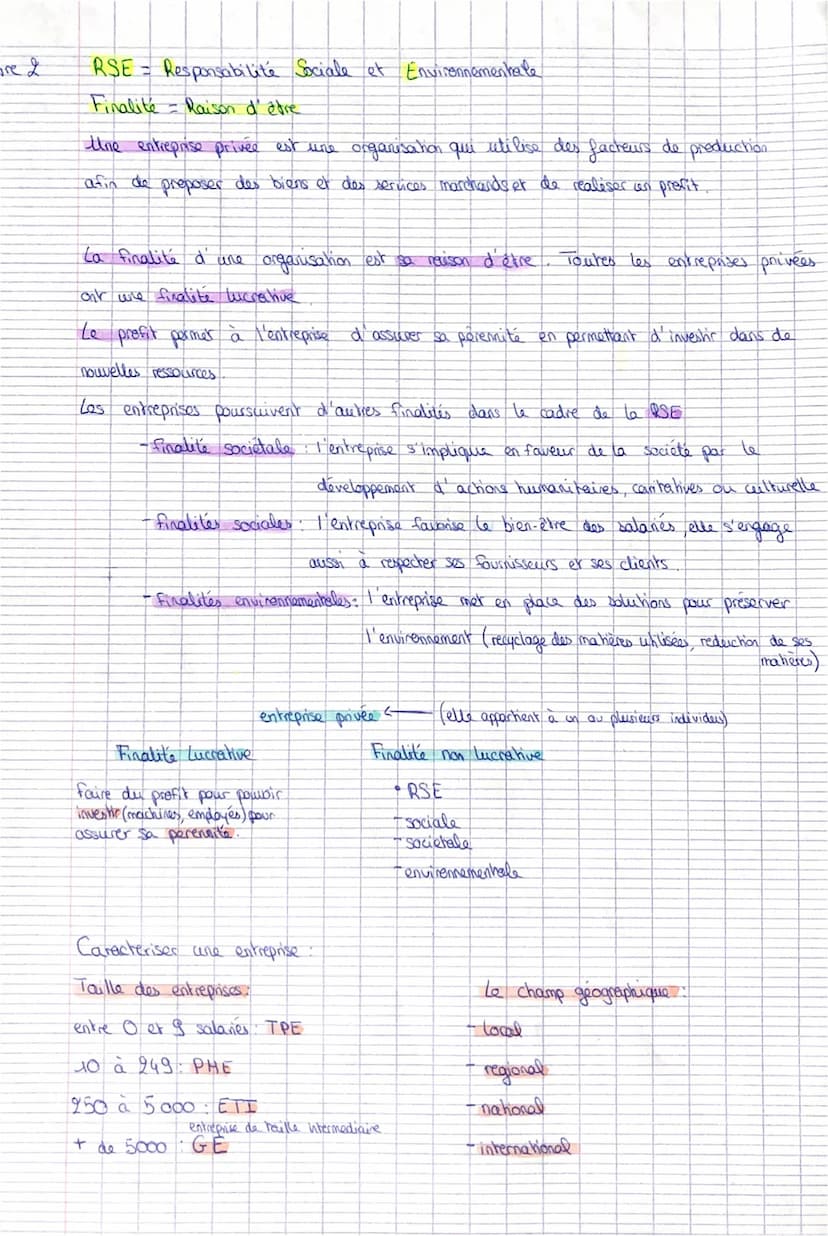 re 2
RSE = Responsabilité Sociale et Environnementale
Finalité = Raison d'être
Une entreprise privée est une organisation qui utilise des facteurs de production
afin de proposer des biens et des services marchands et de realiser un profit.
La finalité d'une organisation est sa raison d'être. Toutes les entreprises privées
ont une finalité lucrative
Le profit permet à l'entreprise d'assurer sa pérennité en permettant d'investir dans de
nouvelles ressources.
Les entreprises poursuivent d'autres finalités dans le cadre de la RSE
- finalité sociétale : l'entreprise s'implique en faveur de la société par le
développement d'actions humanitaires, caritatives ou culturelle
- finalités sociales : l'entreprise favorise le bien-être des salariés, elle s'engage
aussi à respecter ses fournisseurs et ses clients.
- Finalités environnementales : l'entreprise met en place des solutions pour préserver
l'environnement (recyclage des matières utilisées, reduction de ses
matières)
entreprise privée ← (elle appartient à un ou plusieurs individus)
Finalité Lucrative
Finalité non lucrative
faire du profit pour pouvoir
investir (machines, employés) pour
assurer sa perennité.
• RSE
- sociale
- societale
- environnementale
Caracteriser une entreprise :
Taille des entreprises :
entre 0 et 9 salariés : TPE
10 à 249 : PME
250 à 5000 : ETI
entreprise de taille intermediaire
+ de 5000 : GE
Le champ géographique :
- local
- regional
- national
- international